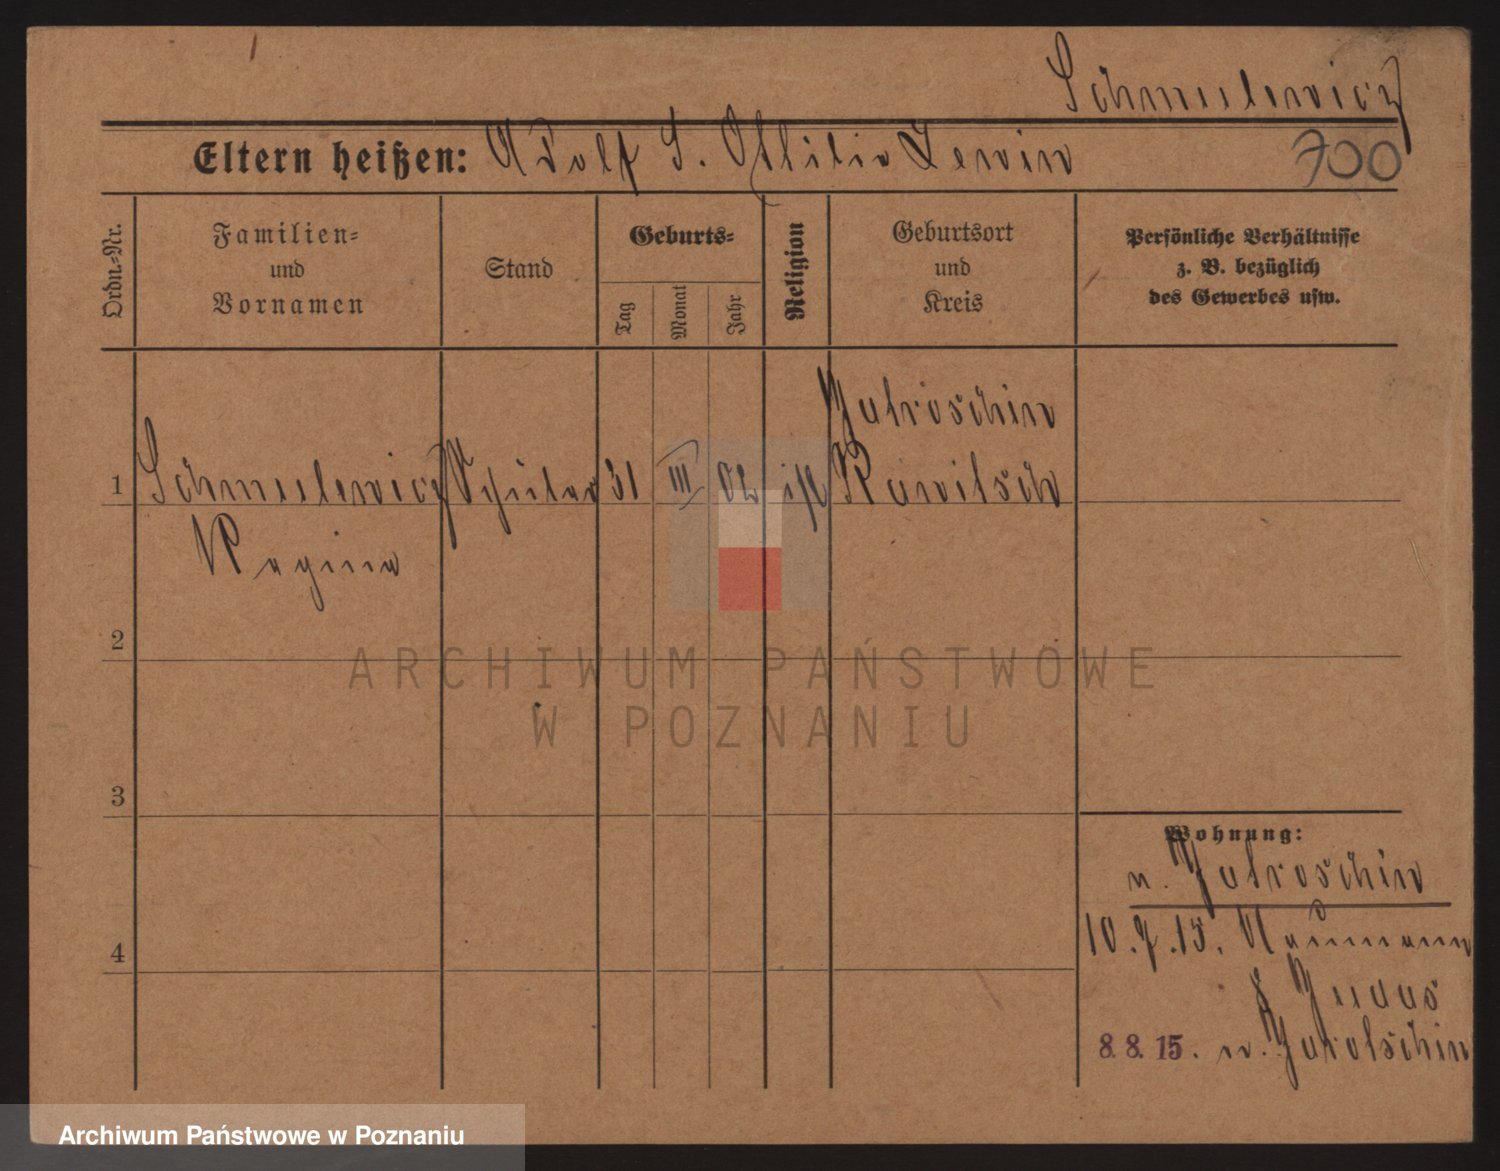 Schmulewicz
Eltern heißen: Adolf S. Ottilie Lewin
700
Ordn.-Nr.
Familien-
und
Vornamen
Stand
Geburts-
Tag
Monat
Jahr
Religion
Geburtsort
und
Kreis
Persönliche Verhältnisse
z. B. bezüglich
des Gewerbes usw.
Jutroschin
1 Schmulewicz Schüler 31 III 02 isr Rawitsch
Regina
2
3
4
Wohnung:
n. Jutroschin
10.7.15. Naumann
8
8.8.15. n. Jarotschin
ARCHIWUM PAŃSTWOWE
W POZNANIU
Archiwum Państwowe w Poznaniu